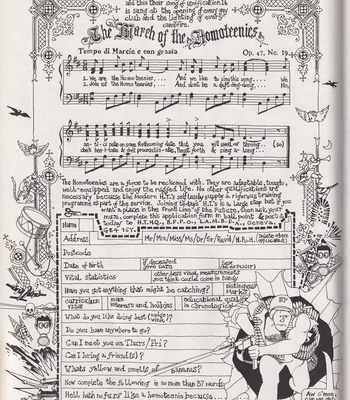 and this their song of unification. It
is sung at the opening of every
club and the lighting of every
campfire.
The March of the Homoteenies
Tempo di Marcia e con grazia Op. 47. No. 19
1. We are the Homoteenies.... And we like to sing this song.... We
2. Join us the Homoteenies... And don't be a ding-dong.... No,
on some forthcoming date that you will come along (so)
forth & sing a long
The Homoteenies are a force to be reckoned with. They are adaptable, tough,
well-equipped and enjoy the rugged life. No other qualifications are
necessary because the Modern H.T's selflessly supply a rigorous training
programme as part of the service. Joining is a large step but if you
want a place in the Front Line of the Future, then ask your
mum, complete this application form in half point & post it
today to H.T.H.Q., B.F.P.O., Geneva.
Name
Address Mr/Mrs/Miss/Ms/Dr/Sir/Revd/H.R.H. (delete where applicable)
Postcode
Date of birth if deceased give date sex (be explicit)
Vital statistics other less vital measurements you think could come in handy
Have you got anything that might be catching? Distinguishing Marks?
Curriculum vitae main interests and hobbies educational quality in chronological
What do you like doing best (voice/wink)?
Do you have anywhere to go?
Can I meet you on Thurs/Fri?
Can I bring a friend(s)?
Whats yellow and smells of bananas?
Now complete the following in no more than 37 words:
Hell hath no fury like a homoteenie because....
Aw c'mon,